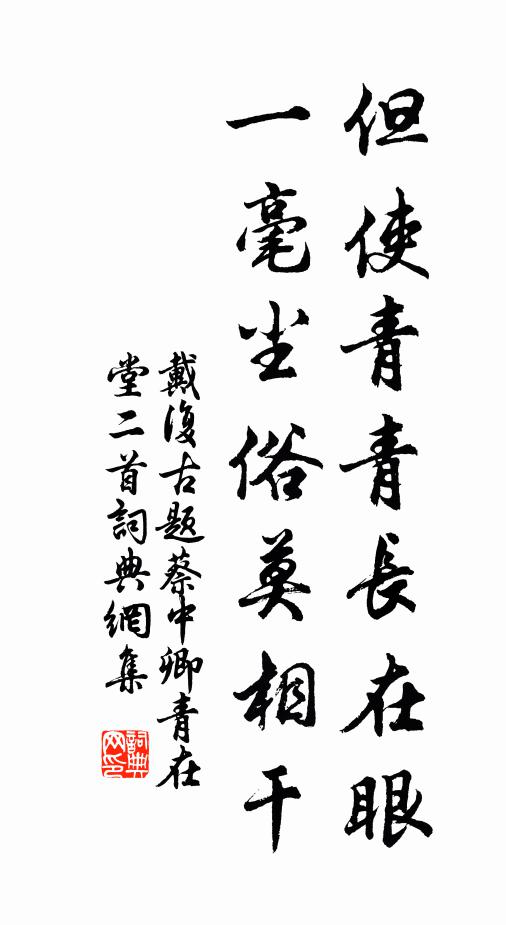 但使青青長在眼
一毫尘俗莫相干
戴復古题蔡中卿青在
堂二首詞典網集
詞典
网印